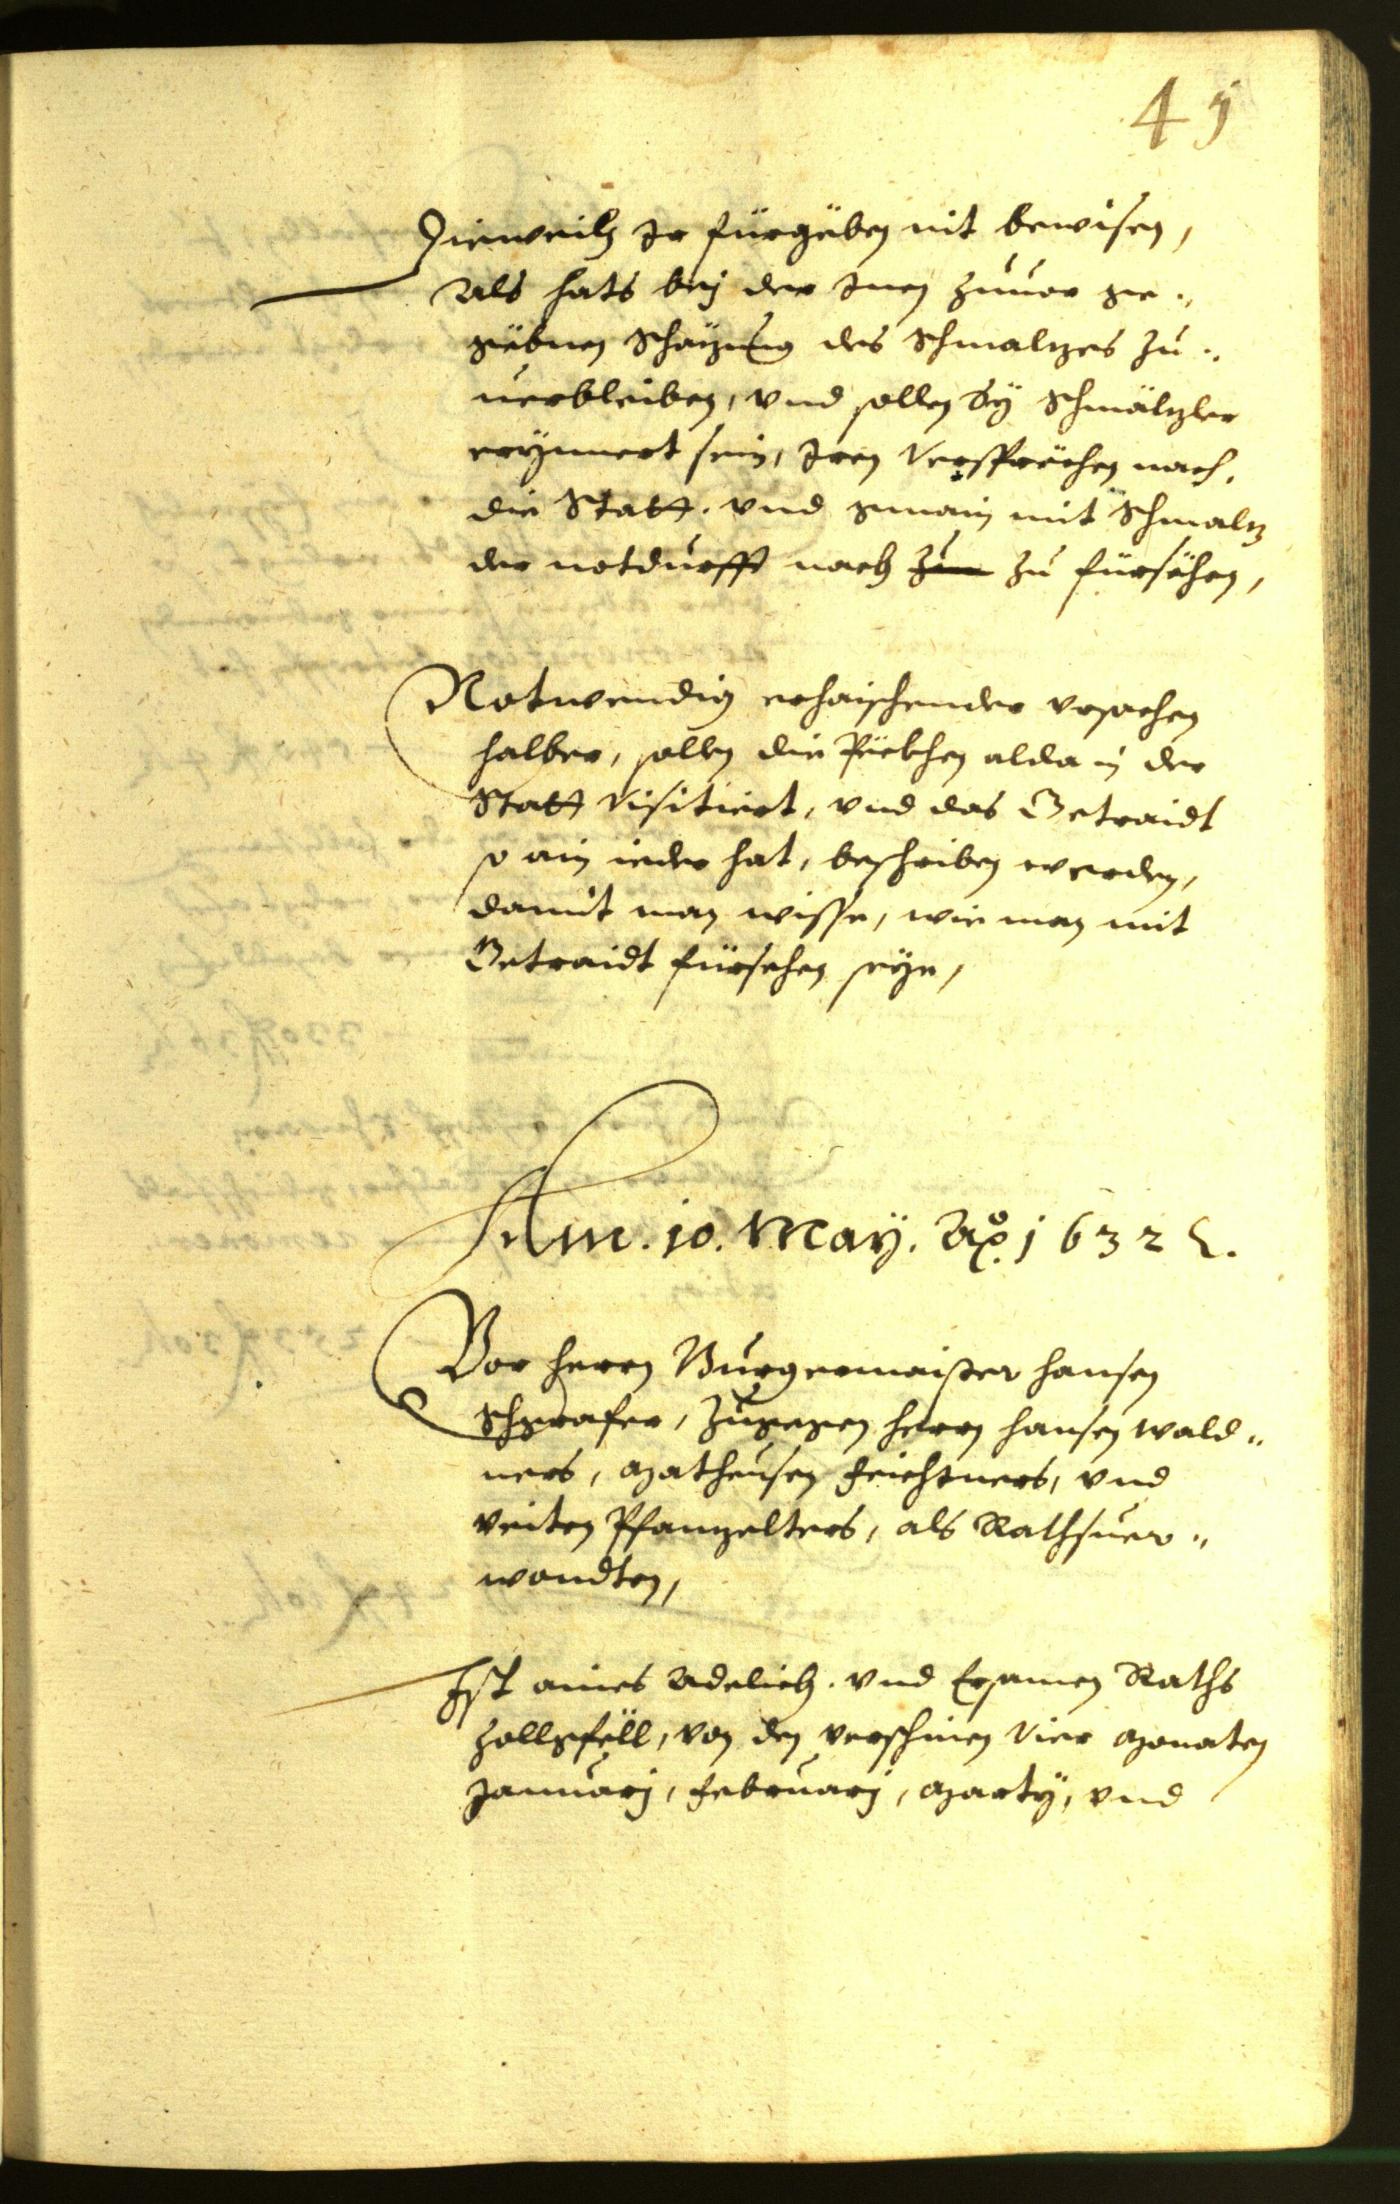 45
Dieweilen Ir fürgëben nit bewisen,
Als hats bej der Inen zuuor ge¬
gëbnen Schazung des Schmaltzes zu¬
uerbleiben, vnd sollen Sy Schmältzler
erynnert sein, Iren Versprëchen nach,
die Statt. vnd gmain mit Schmaltz
der notdurfft nach zu zu fürsëhen,
Notwendig erhaischender vrsachen
halber, sollen die Peckhen alda in der
Statt Visitiert, vnd das Getraidt
so ain ieder hat, beschriben werden,
damit man wisse, wie man mit
Getraidt fürsehen seye,
Am. 10. May. Ao. 1632.
Vor herrn Burgermaister Hansen
Schgrafer, Zugegen herrn Hansen Wald¬
ners, Matheusen Feichtners, vnd
Veiten Pfanzelters, als Rathsuer¬
wondten,
Ist aines Adelich. vnd Ersamen Raths
Zollgfëll, von den verschinen Vier Monaten
Januarj, Februarj, Marty, vnd